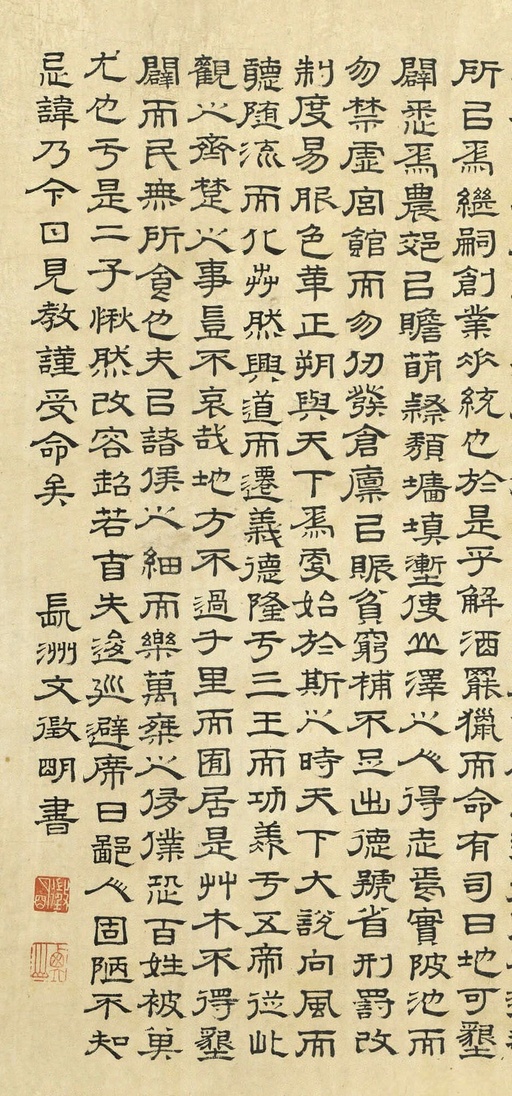 所以為繼嗣創業垂統也於是乎解酒罷獵而命有司曰地可墾
闢悉為農郊以贍萌隸頹墻填塹使山澤之人得走焉實陂池而
勿禁虛宮館而勿仞發倉廩以賑貧窮補不足出德號省刑罰改
制度易服色革正朔與天下為更始於斯之時天下大說向風而
聽隨流而化芔然興道而遷義德隆于三王而功羨于五帝從此
觀之齊楚之事豈不哀哉地方不過千里而囿居是艸木不得墾
闢而民無所食也夫以諸侯之細而樂萬乘之侈僕恐百姓被其
尤也于是二子愀然改容超若自失逡巡避席曰鄙人固陋不知
忌諱乃今日見教謹受命矣
長洲文徵明書